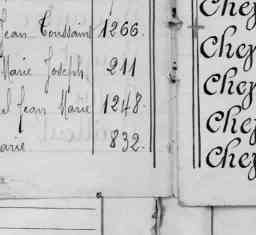 Jean Toussaint 1266.
Marie Joseph 211
el Jean Marie 1248.
arie 832.
Chef
Chef
Chef
Chef
Chef